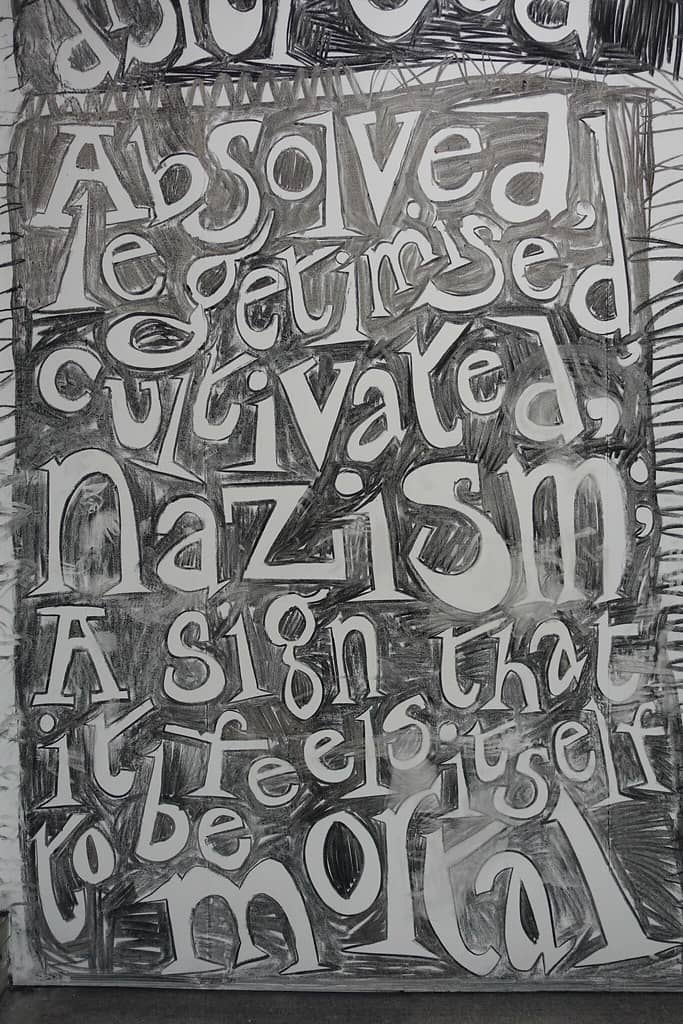 Absolved,
legetimised,
cultivated,
nazism;
A sign that
it feels itself
to be
mortal